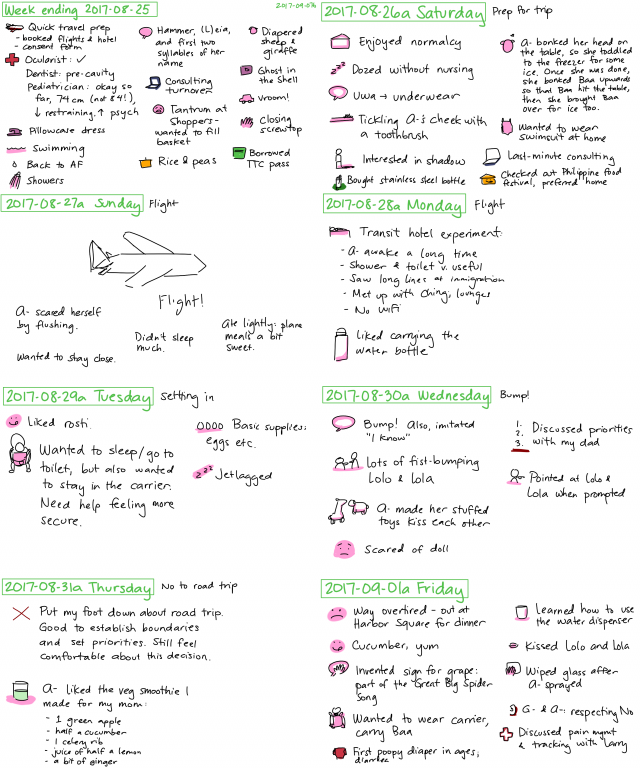 Week ending 2017-08-25
2017-09-03b
Quick travel prep
- booked flights & hotel
- consent form
Oculanist: ✓
Dentist: pre-cavity
Pediatrician: okay so
far, 74 cm (not 84!),
↓ restraining, ↑ psych
Pillowcase dress
Swimming
Back to AF
Showers
Hammer, (L)eia,
and first two
syllables of her
name
Consulting
turnover
Tantrum at
Shoppers-
wanted to fill
basket
Rice & peas
Diapered
sheep &
giraffe
Ghost in
the Shell
Vroom!
Closing
screwtop
Borrowed
TTC pass
2017-08-26a Saturday Prep for trip
Enjoyed normalcy
Dozed without nursing
Uwa → underwear
Tickling A-'s cheek with
a toothbrush
Interested in shadow
Bought stainless steel bottle
A- bonked her head on
the table, so she toddled
to the freezer for some
ice. Once she was done,
she bonked Baa upwards
so that Baa hit the table,
then she brought Baa
over for ice too.
Wanted to wear
swimsuit at home
Last-minute consulting
Checked out Philippine food
festival, preferred home
2017-08-27a Sunday Flight
Flight!
A- scared herself
by flushing.
Wanted to stay close.
Didn't sleep
much.
Ate lightly: plane
meals a bit
sweet.
2017-08-28a Monday Flight
Transit hotel experiment:
- A- awake a long time
- Shower & toilet v. useful
- Saw long lines at immigration
- Met up with Ching; lounges
- No wifi
Liked carrying the
water bottle
2017-08-29a Tuesday Setting in
Liked rosti.
Wanted to sleep/go to
toilet, but also wanted
to stay in the carrier.
Need help feeling more
secure.
Basic supplies:
eggs etc.
Jetlagged
2017-08-30a Wednesday Bump!
Bump! Also, imitated
"I know"
Lots of fist-bumping
Lolo & Lola
A- made her stuffed
toys kiss each other
Scared of doll
1.
2.
3.
Discussed priorities
with my dad
Pointed at Lolo &
Lola when prompted
2017-08-31a Thursday No to road trip
Put my foot down about road trip.
Good to establish boundaries
and set priorities. Still feel
comfortable about this decision.
A- liked the veg smoothie I
made for my mom:
- 1 green apple
- half a cucumber
- 1 celery rib
- juice of half a lemon
- a bit of ginger
2017-09-01a Friday
Way overtired - out at
Harbor Square for dinner
Cucumber, yum
Invented sign for grape:
part of the Great Big Spider
Song
Wanted to wear carrier,
carry Baa
First poopy diaper in ages;
diarrhea
Learned how to use
the water dispenser
Kissed Lolo and Lola
Wiped glass after
A- sprayed
G- & A-: respecting No
Discussed pain mgmt
& tracking with Larry